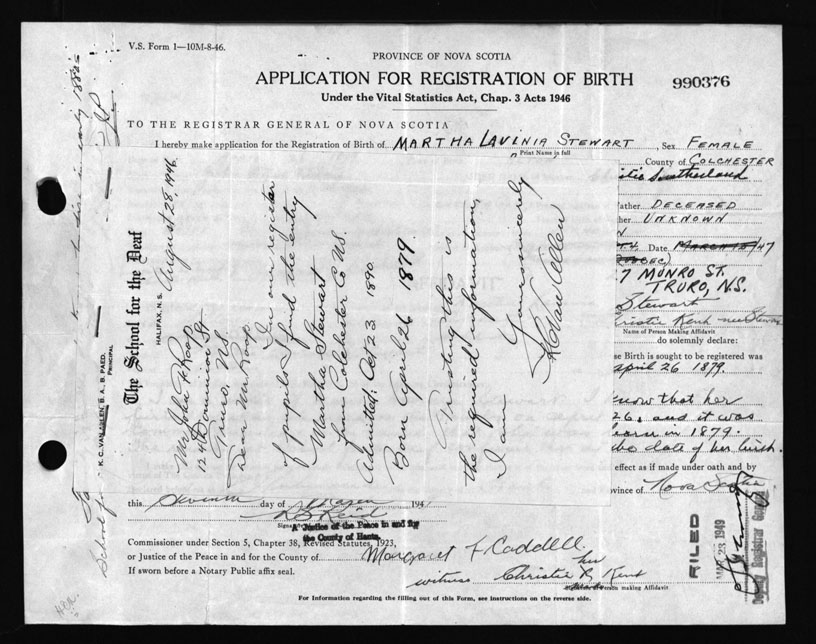 V.S. Form 1—10M-8-46.
PROVINCE OF NOVA SCOTIA
APPLICATION FOR REGISTRATION OF BIRTH
990376
Under the Vital Statistics Act, Chap. 3 Acts 1946
TO THE REGISTRAR GENERAL OF NOVA SCOTIA
I hereby make application for the Registration of Birth of MARTHA LAVINIA STEWART, Sex FEMALE
Print Name in full
County of COLCHESTER
Sutherland
ather DECEASED
her UNKNOWN
Date MARCH 15/47
7 MUNRO ST.
TRURO, N.S.
Stewart
Christie Kent nee Stewart
Name of Person Making Affidavit
do solemnly declare:
se Birth is sought to be registered was
April 26 1879.
know that her
26, and it was
born in 1879.
the date of her birth.
effect as if made under oath and by
ovince of Nova Scotia
The School for the Deaf
HALIFAX, N.S. August 28 1946
PRINCIPAL
Mr John F. Roop
124 Dominion St.
Truro, N.S.
Dear Mr. Roop
In our register
of pupils I find the entry
Martha Stewart
from Colchester Co NS.
Admitted: Oct 23 1890.
Born April 26 1879
Trusting this is
the required information,
I am
Yours sincerely
this seventh day of March 194
A Justice of the Peace in and for
the County of Hants.
Commissioner under Section 5, Chapter 38, Revised Statutes, 1923,
or Justice of the Peace in and for the County of
If sworn before a Notary Public affix seal.
Margaret F Caddell
witness Christie R Kent
her
Person making Affidavit
FILED
23 1949
Deputy Registrar General
For Information regarding the filling out of this Form, see instructions on the reverse side.